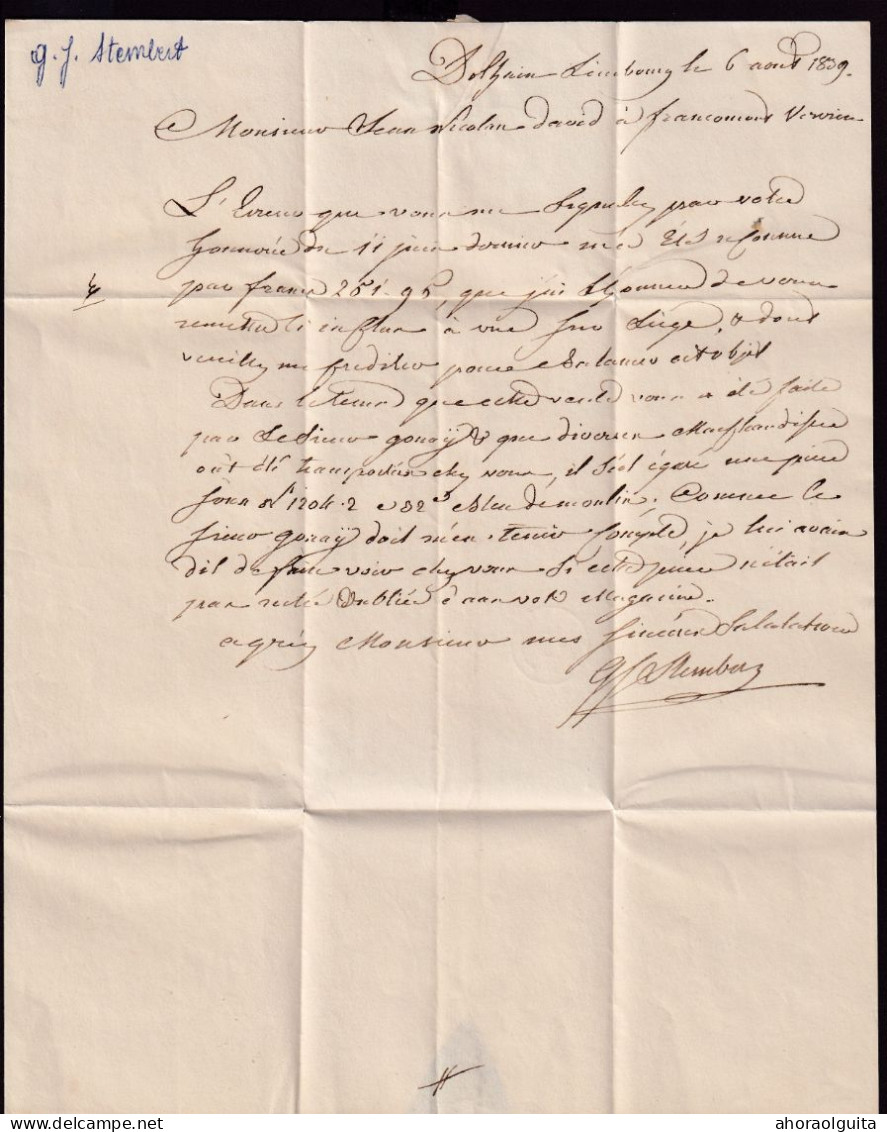 g. J. Stembert
Dolhain Limbourg le 6 aout 1839.
Monsieur Jean Nicolas david à francomont Verviers
L'Erreur que vous me Signalez par votre
honnorée du 11 juin dernier m'a Été reconnue
par francs 251.95, que j'ai l'honneur de vous
remettre ci inclus à vue sur Liège, & dont
veuillez me Créditer pour Balancer cet objet
Dans le tems que cette vente vous a été faite
par Le Sieur gonaÿ & que diverses Marchandises
ont été transportées chez vous, il s'est égaré une pièce
sous N° 1204.2 32 Bleu de moulin. Comme le
sieur gonaÿ doit m'en tenir Compte, je lui avais
dit de faire voir chez vous Si cette pièce n'était
pas restée Oubliée dans vos Magasins.
agréez Monsieur mes Sincères Salutations
GJ Stembert
ahoraolguita
delcampe.net